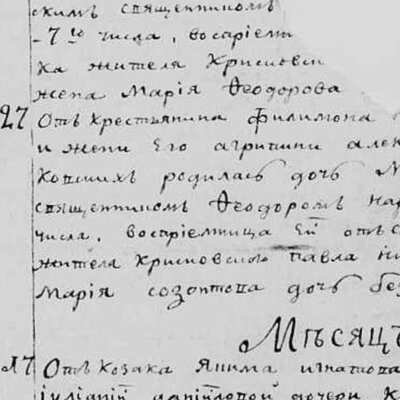 скимъ священникомъ
- 7го числа, воспріемн
ка жителя Крисновск
жена Марія Ѳеодорова
27 Отъ крестьянина филимона
и жени Его агрипини алек
родилась дочь М
священникомъ Ѳеодоромъ нар
числа. воспріемница Ей отъ с
жителя Крисновского павла
Марія созонтова дочь без
Мѣсяцъ
17 Отъ козака якима игнатова
іуліаніи даніиловой дочери К